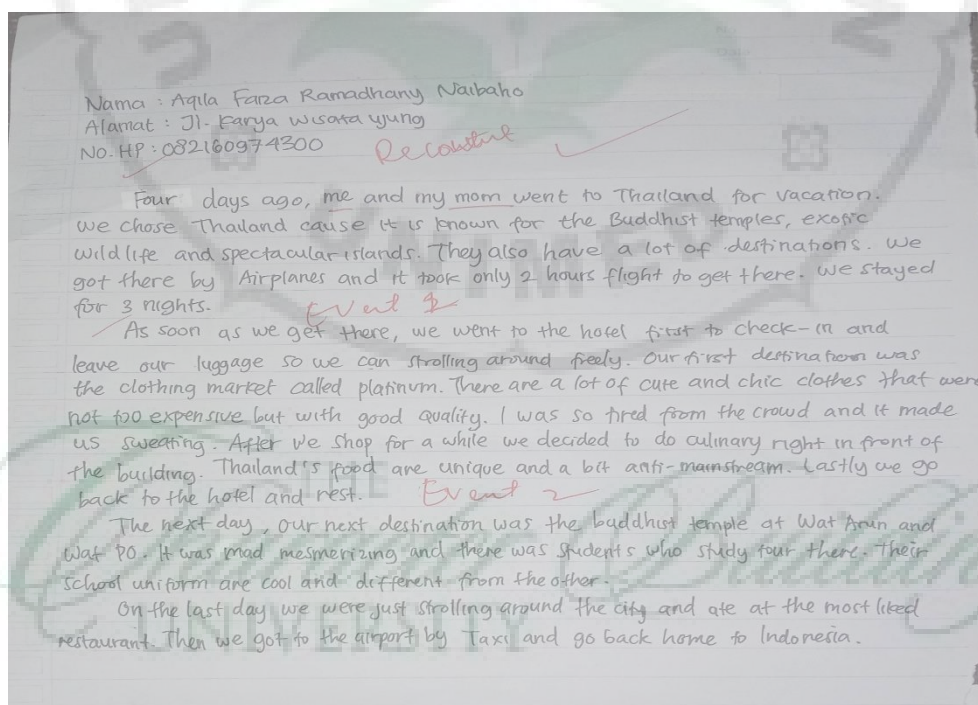 Nama : Aqila Faiza Ramadhany Naibaho
Alamat : Jl. Karya Wisata ujung
No. HP : 082160974300
Four days ago, me and my mom went to Thailand for vacation.
we chose Thailand cause it is known for the Buddhist temples, exotic
wildlife and spectacular islands. They also have a lot of destinations. We
got there by Airplanes and it took only 2 hours flight to get there. We stayed
for 3 nights.
Event 1
As soon as we get there, we went to the hotel first to check-in and
leave our luggage so we can strolling around freely. Our first destination was
the clothing market called platinum. There are a lot of cute and chic clothes that were
not too expensive but with good quality. I was so tired from the crowd and it made
us sweating. After we shop for a while we decided to do culinary right in front of
the building. Thailand's food are unique and a bit anti-mainstream. Lastly we go
back to the hotel and rest.
Event 2
The next day, our next destination was the buddhist temple at Wat Arun and
Wat Po. It was mad mesmerizing and there was students who study tour there. Their
school uniform are cool and different from the other.
On the last day we were just strolling around the city and ate at the most liked
restaurant. Then we got to the airport by Taxi and go back home to Indonesia.
THE
UNIVERSITY